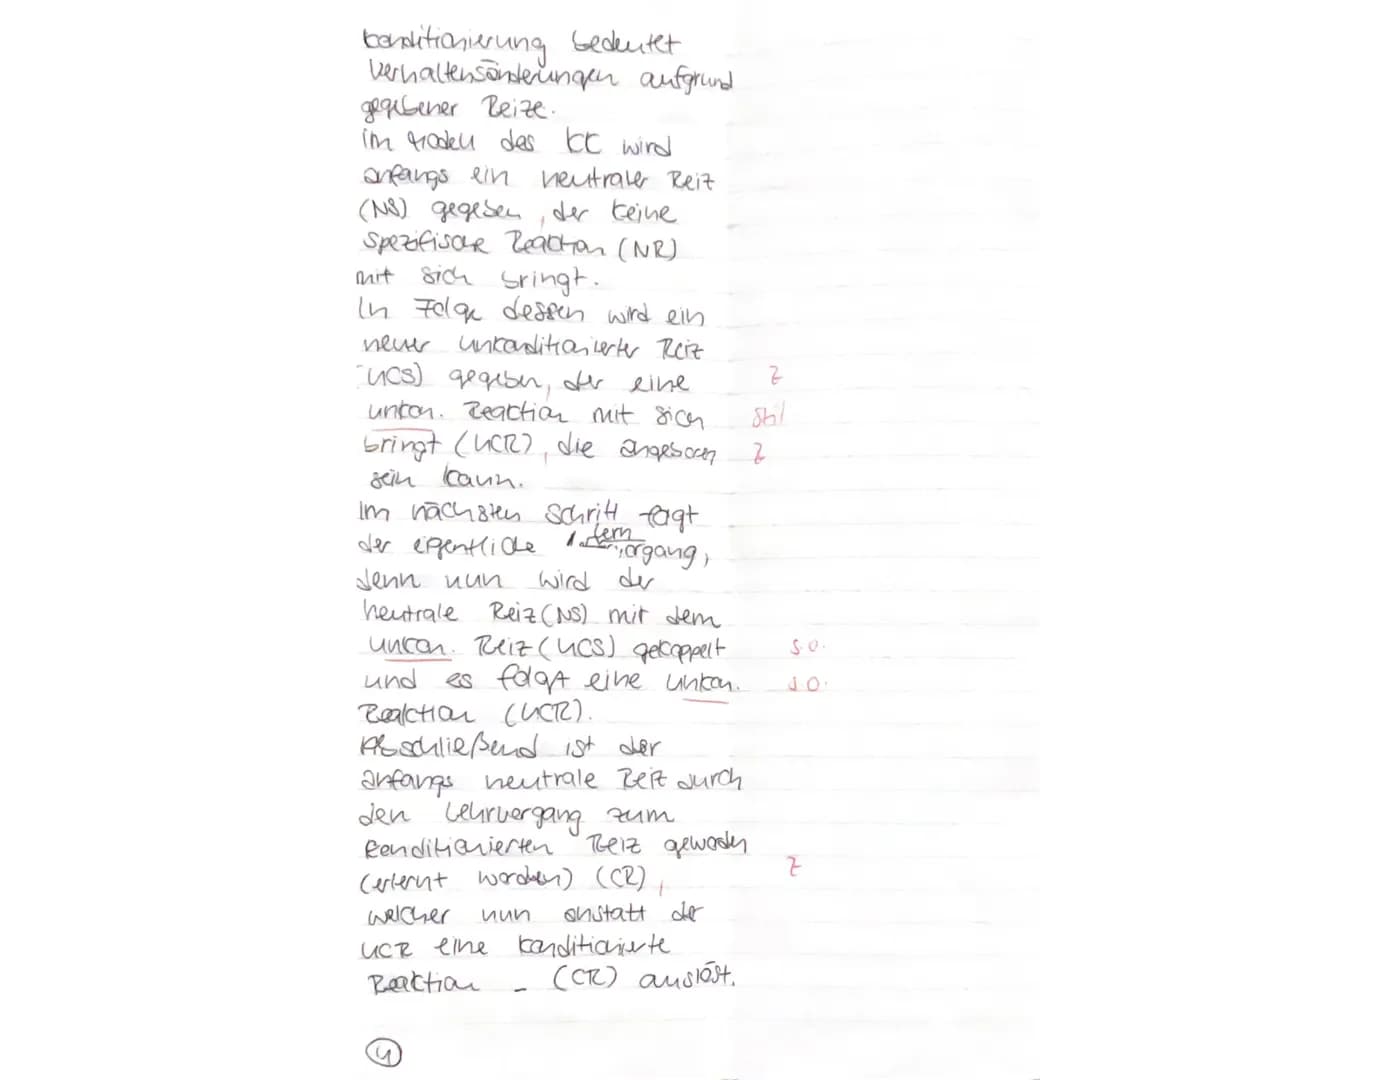 Konditionierung bedeutet
Verhaltensänderungen aufgrund
gegebener Reize.
Im Modell des KK wird
anfangs ein neutraler Reiz
(NS) gegeben, der keine
spezifische Reaktion (NR)
mit sich bringt.
In Folge dessen wird ein
neuer unkonditionierter Reiz
UCS) gegeben, der eine Z
unkon. Reaktion mit sich Stil
bringt (UCR), die angeboren Z
sein kann.
Im nächsten Schritt folgt
der eigentliche Lernvorgang,
denn nun wird der
neutrale Reiz (NS) mit dem
unkon. Reiz (UCS) gekoppelt s.o.
und es folgt eine unkon. s.o.
Reaktion (UCR).
Abschließend ist der
anfangs neutrale Reiz durch
den Lehrvorgang zum
konditionierten Reiz geworden
(erlernt worden) (CR), Z
welcher nun anstatt der
UCR eine konditionierte
Reaktion - (CR) auslöst.
4